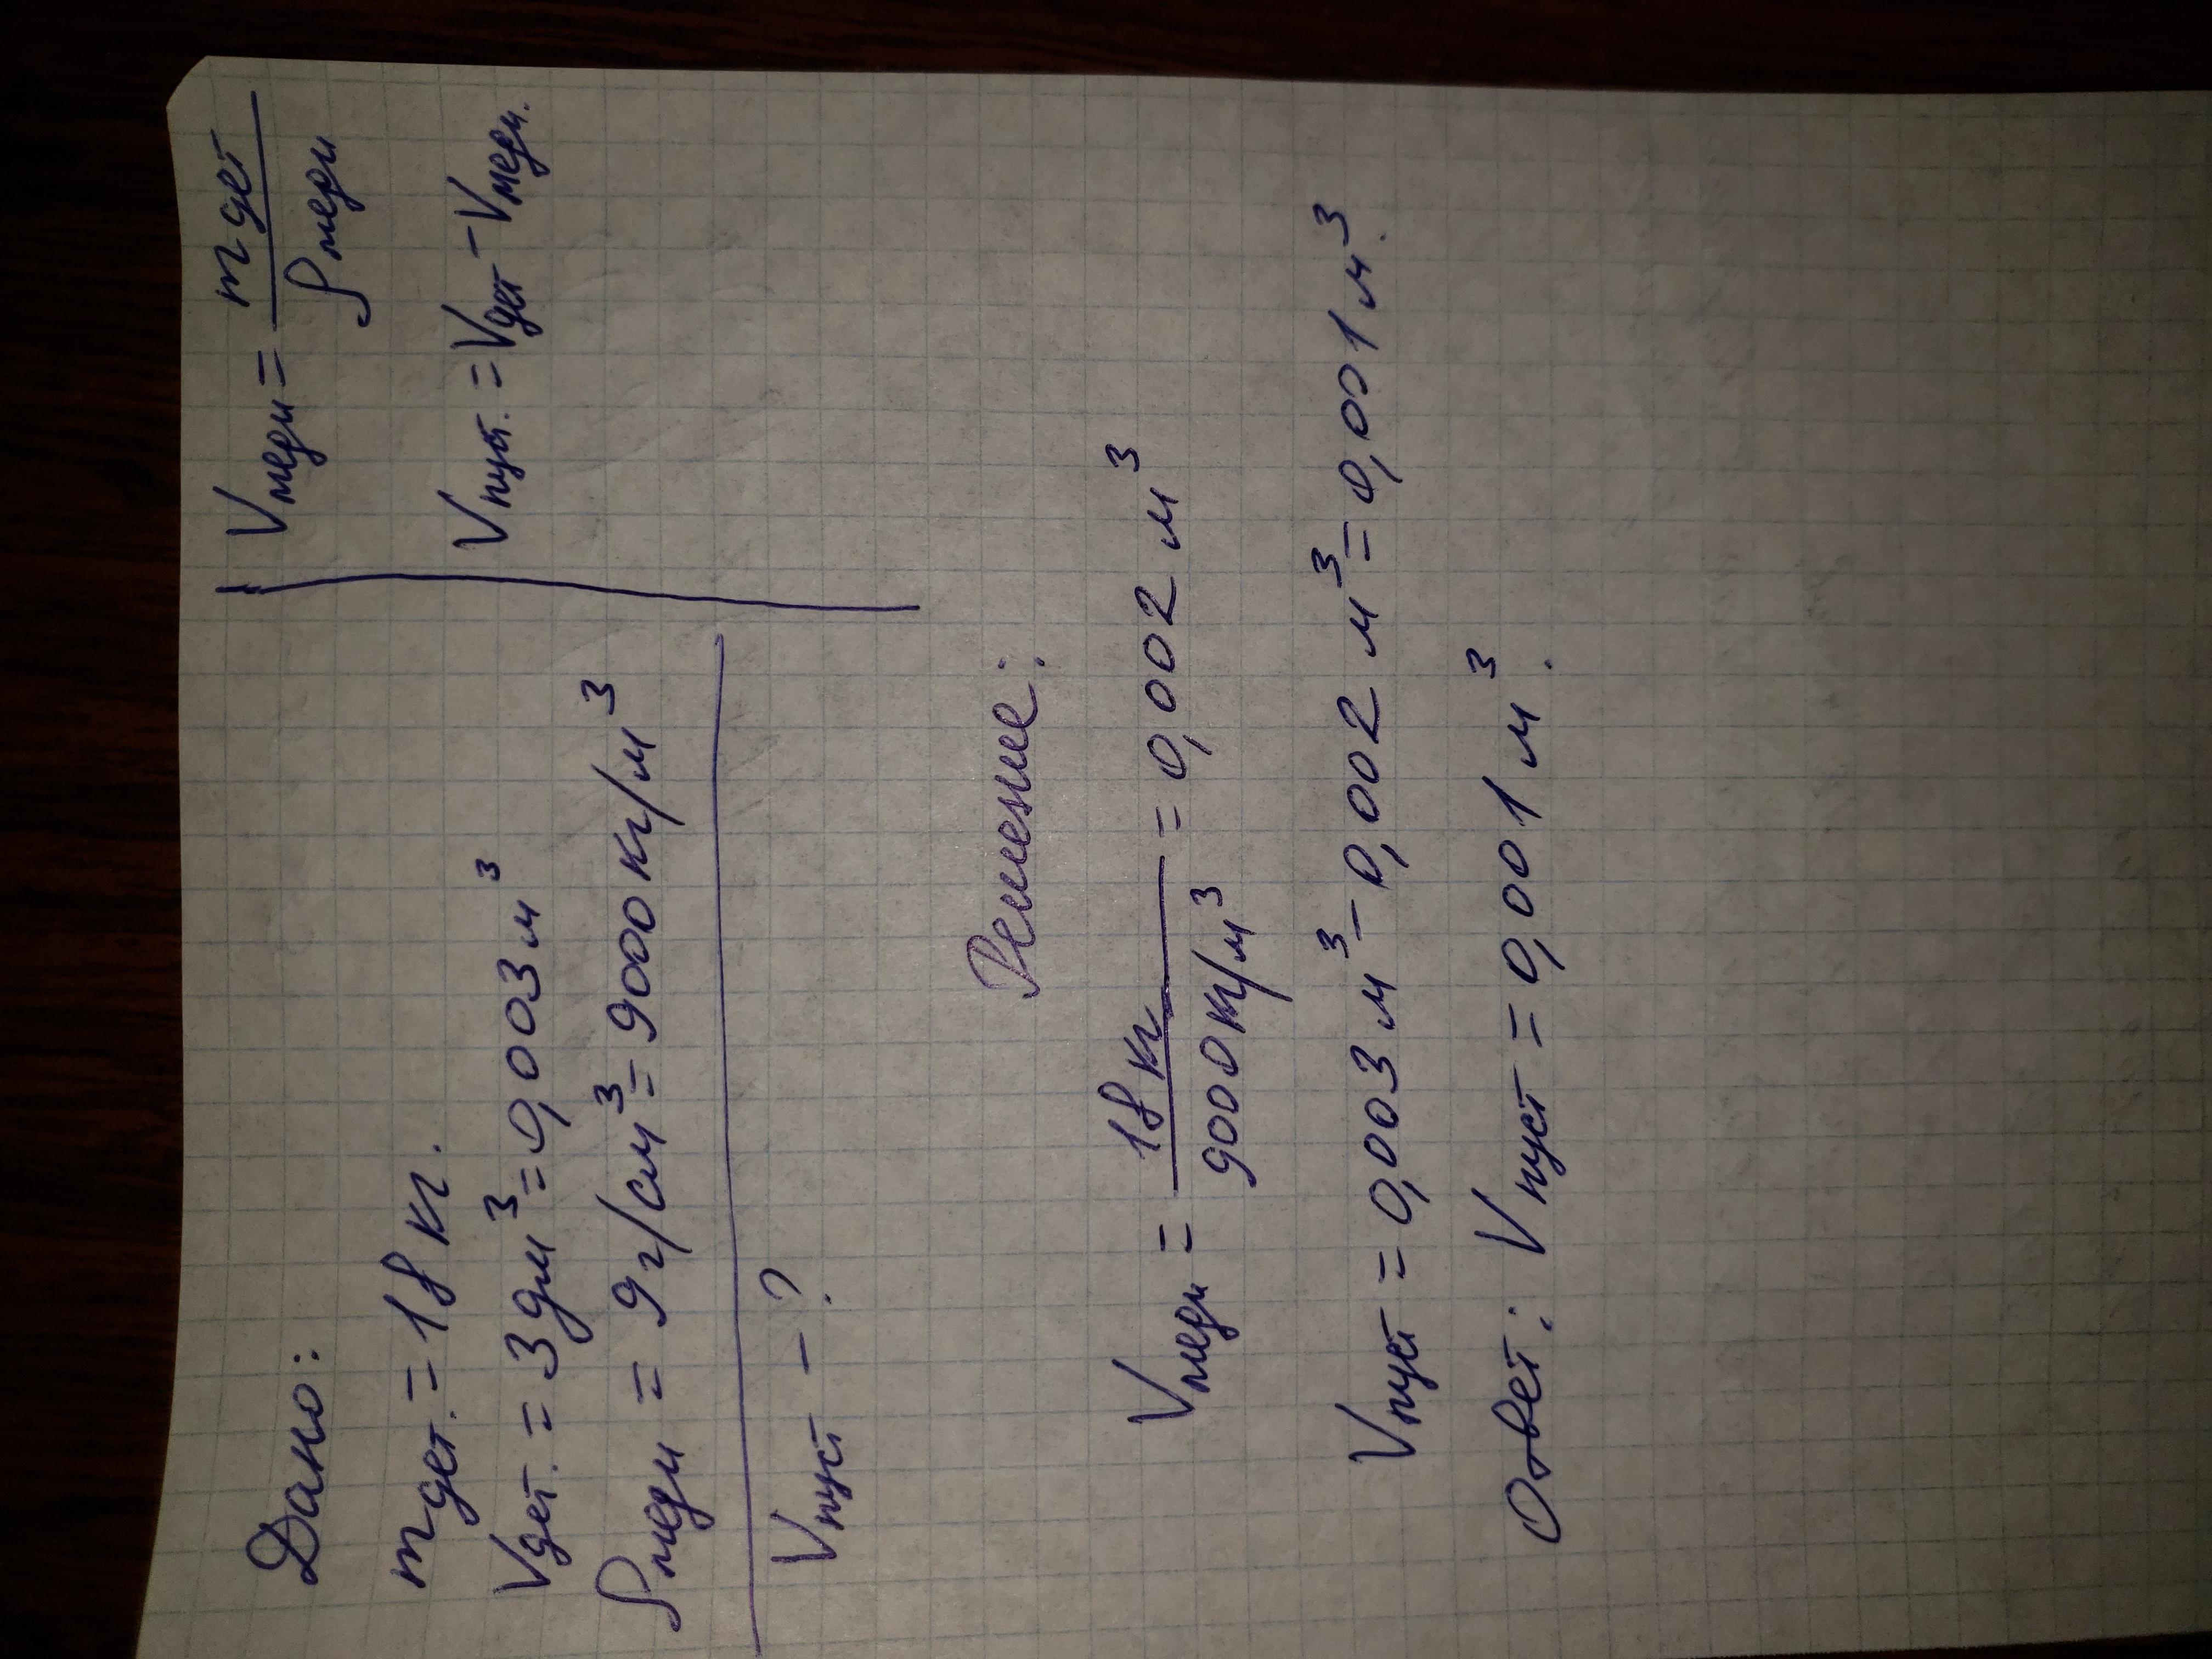 Дано:
m дет. = 18 кг.
V дет. = 3 дм³ = 0,003 м³
ρ меди = 9 г/см³ = 9000 кг/м³
V пуст - ?
V меди = m дет / ρ меди
V пуст. = V дет - V меди.
Решение:
V меди = 18 кг / 9000 кг/м³ = 0,002 м³
V пуст = 0,003 м³ - 0,002 м³ = 0,001 м³.
Ответ: V пуст = 0,001 м³.